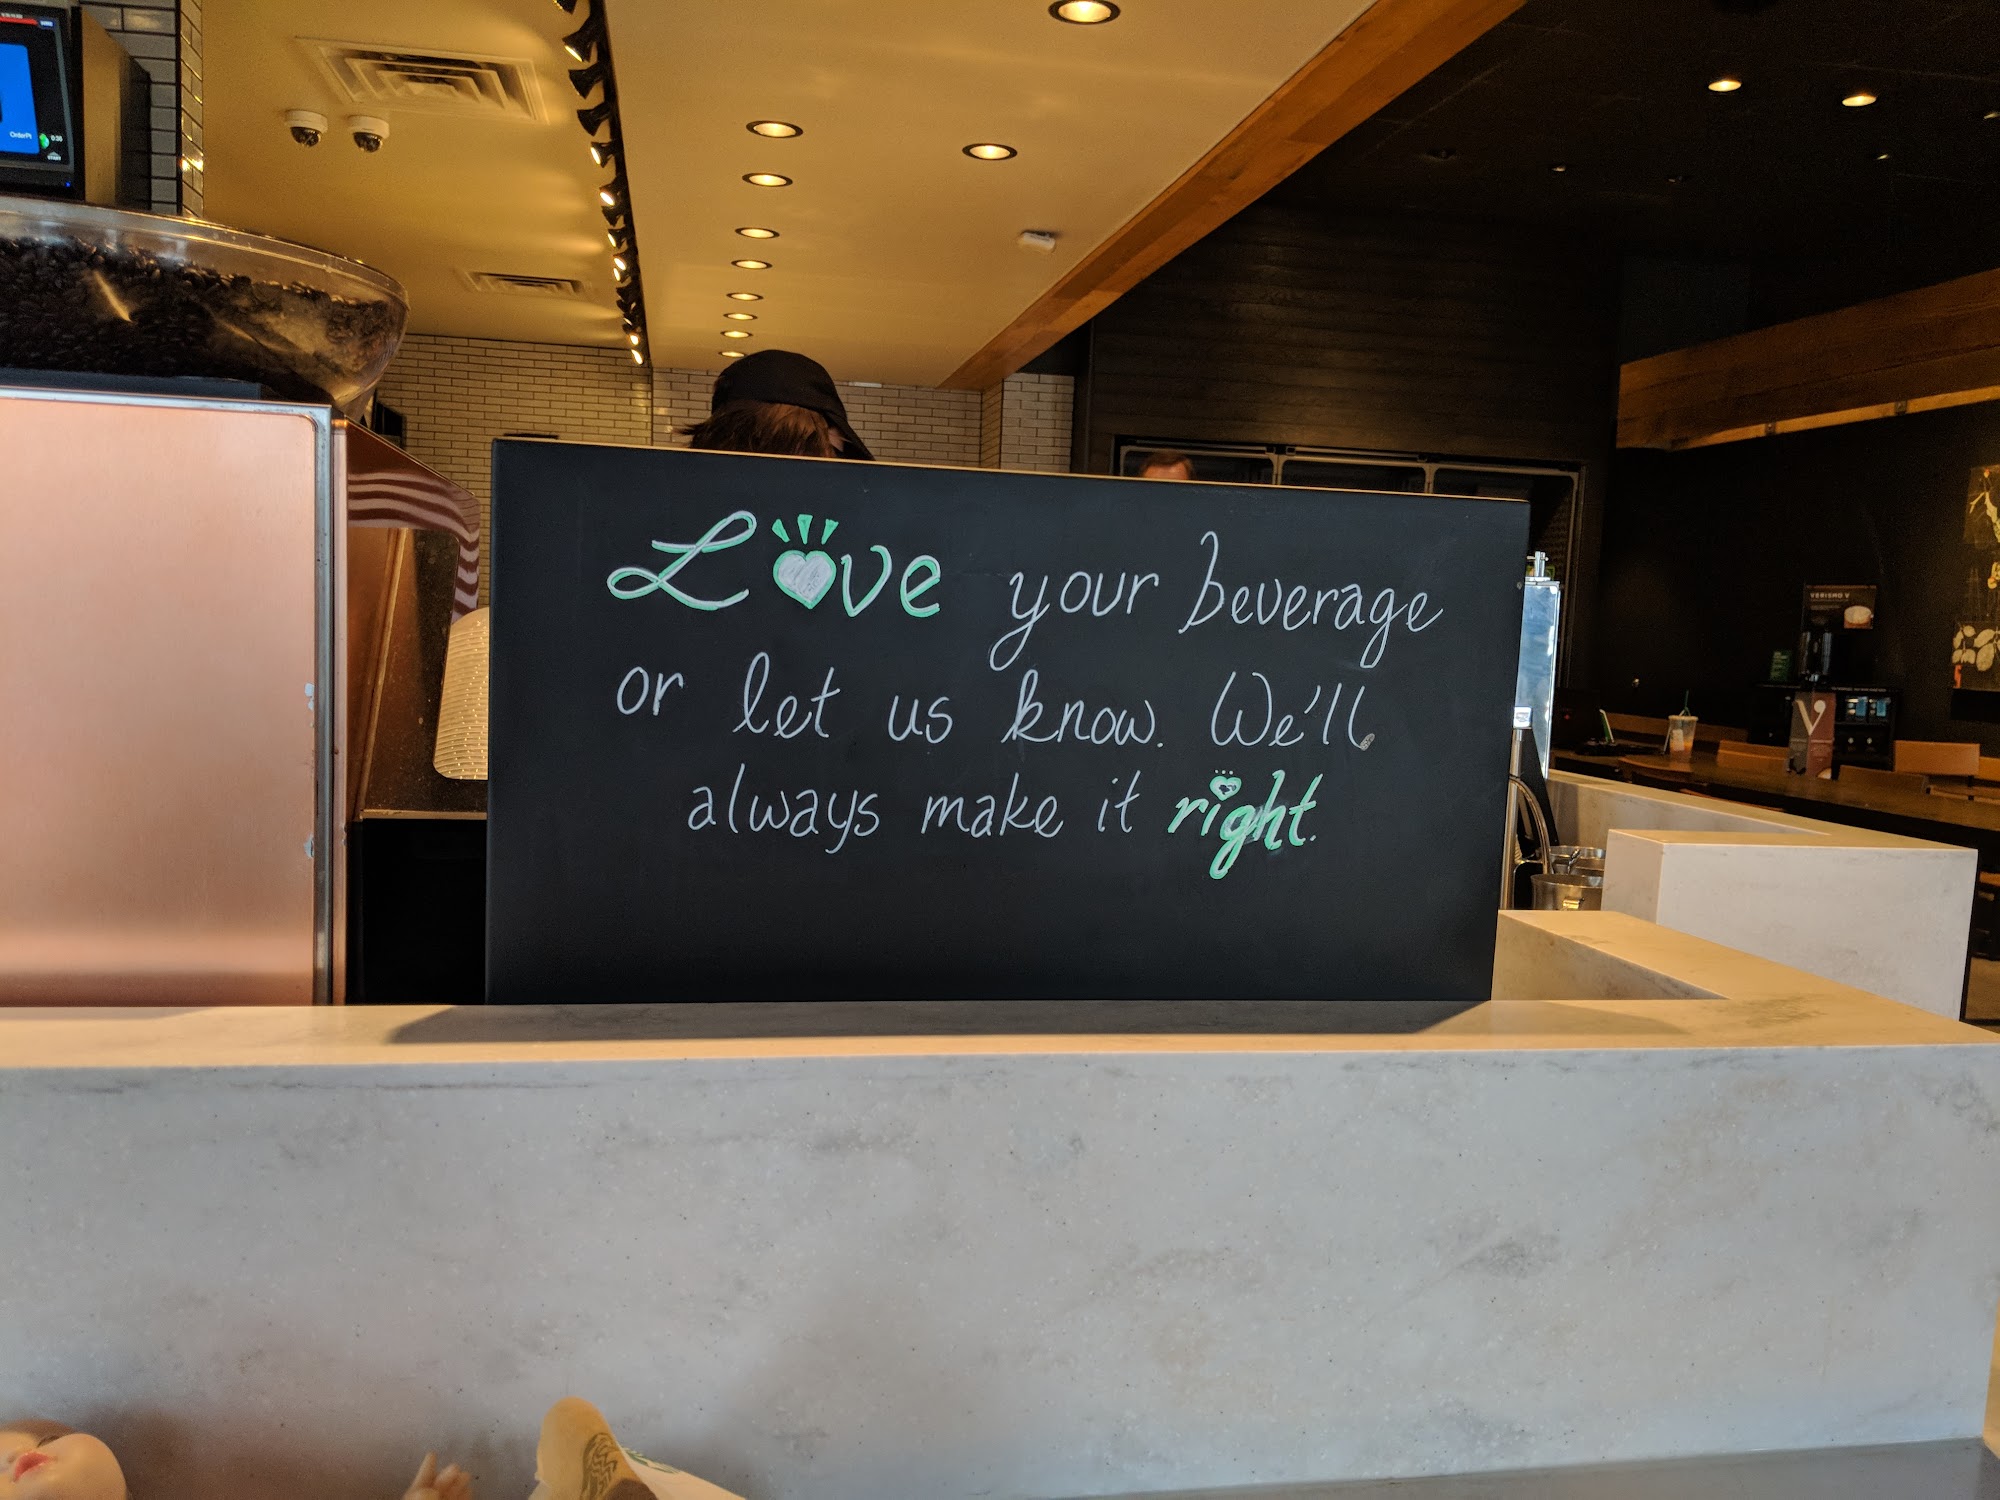 Love your beverage
or let us know. We'll
always make it right.
VERISMO V
V
OrderPt
0:36